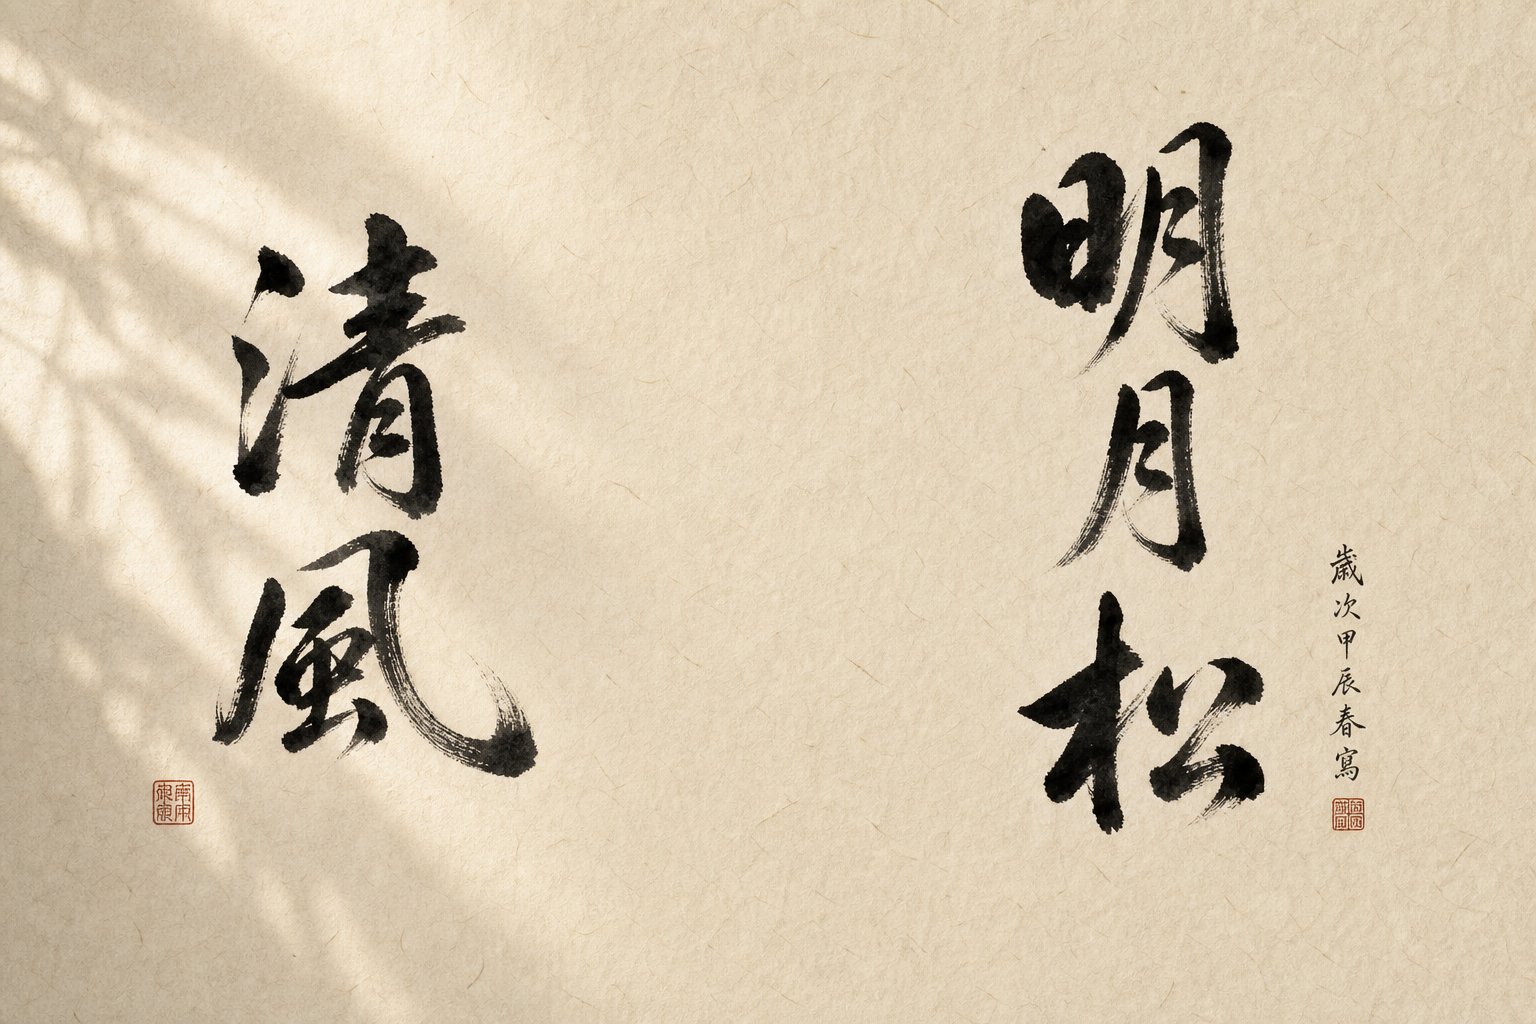 歲次甲辰春寫
明月松
清風